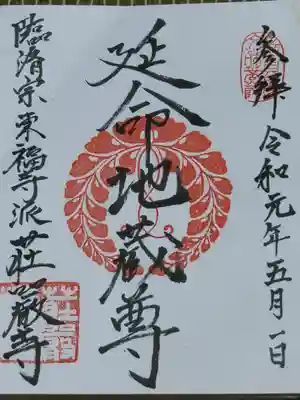 参拝 令和元年五月一日
延命地蔵尊
臨済宗東福寺派荘嚴寺